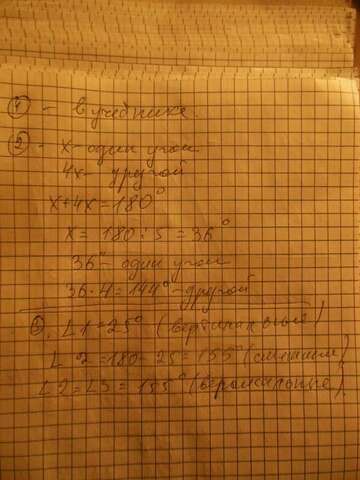 ① - в учебнике.
② - x - один угол
4x - другой
x+4x=180°
x = 180:5 = 36°
36° - один угол
36·4=144° - другой
∠1=25° (вертикальные)
∠2=180-25=155° (смежные)
∠2=∠3=155° (вертикальные)